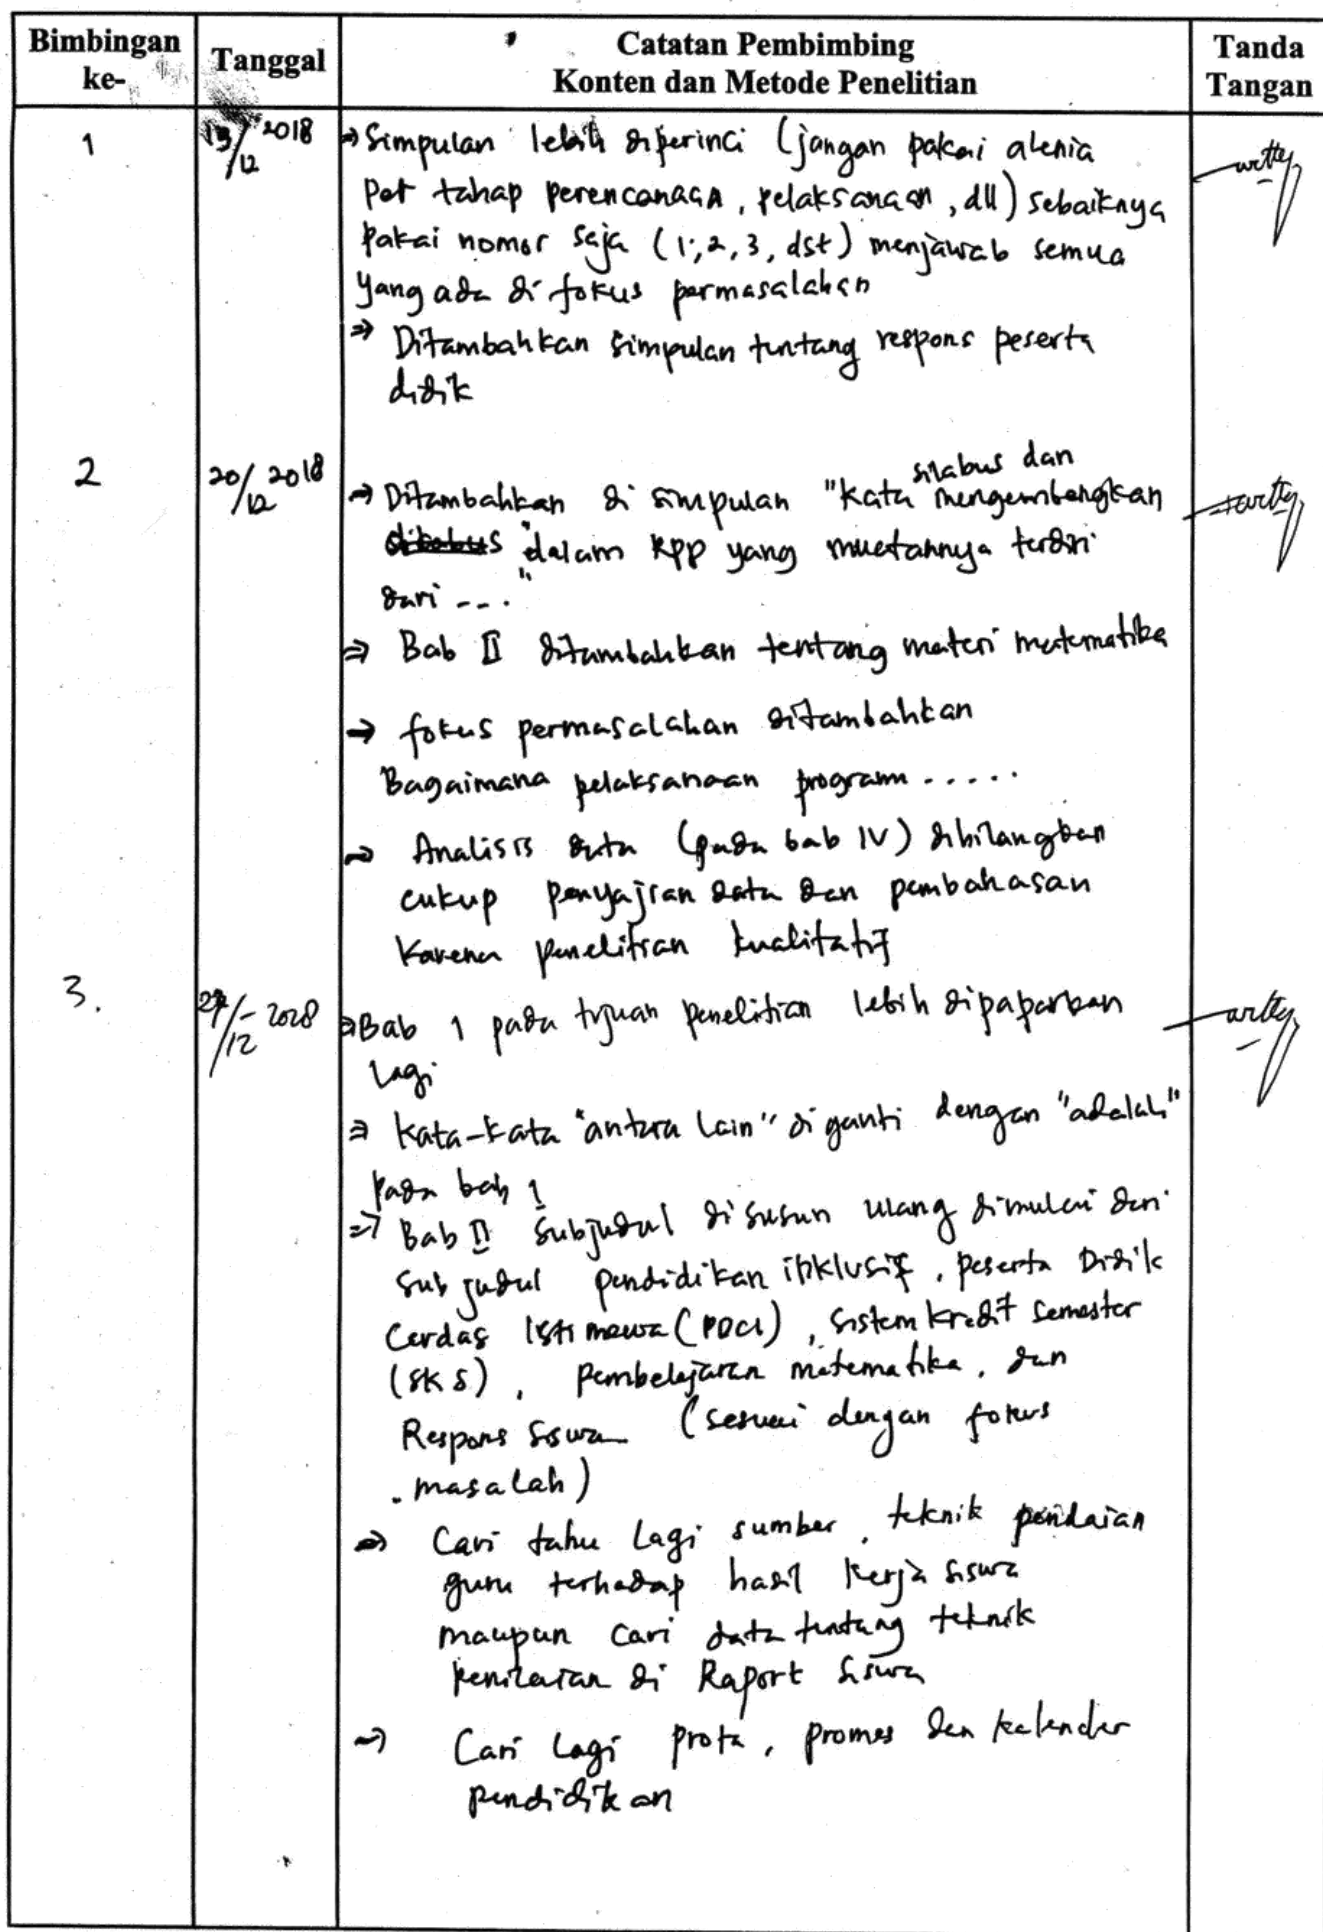 Bimbingan ke-
Tanggal
Catatan Pembimbing
Konten dan Metode Penelitian
Tanda Tangan
1
13/12 2018
⇒ Simpulan lebih diperinci (jangan pakai alenia
per tahap perencanaan, pelaksanaan, dll) sebaiknya
pakai nomor saja (1, 2, 3, dst) menjawab semua
yang ada di fokus permasalahan
⇒ Ditambahkan simpulan tentang respons peserta
didik
2
20/12 2018
silabus dan
⇒ Ditambahkan di simpulan "kata mengembangkan
"dalam RPP yang muatannya terdiri
dari ---."
⇒ Bab II ditambahkan tentang materi matematika
→ fokus permasalahan ditambahkan
Bagaimana pelaksanaan program .....
⇒ Analisis data (pada bab IV) dihilangkan
cukup penyajian data dan pembahasan
karena penelitian kualitatif
3.
27/12 - 2018
⇒ Bab 1 pada tujuan penelitian lebih dipaparkan
lagi
⇒ Kata-kata "antara lain" diganti dengan "adalah"
pada bab 1
⇒ Bab II subjudul disusun ulang dimulai dari
sub judul pendidikan inklusif, peserta Didik
Cerdas Istimewa (PDCI), sistem kredit semester
(SKS), Pembelajaran matematika, dan
Respons siswa (sesuai dengan fokus
masalah)
⇒ Cari tahu lagi sumber, teknik penilaian
guru terhadap hasil kerja siswa
maupun cari data tentang teknik
penilaian di Raport siswa
→ Cari lagi prota, promes dan kalender
pendidikan